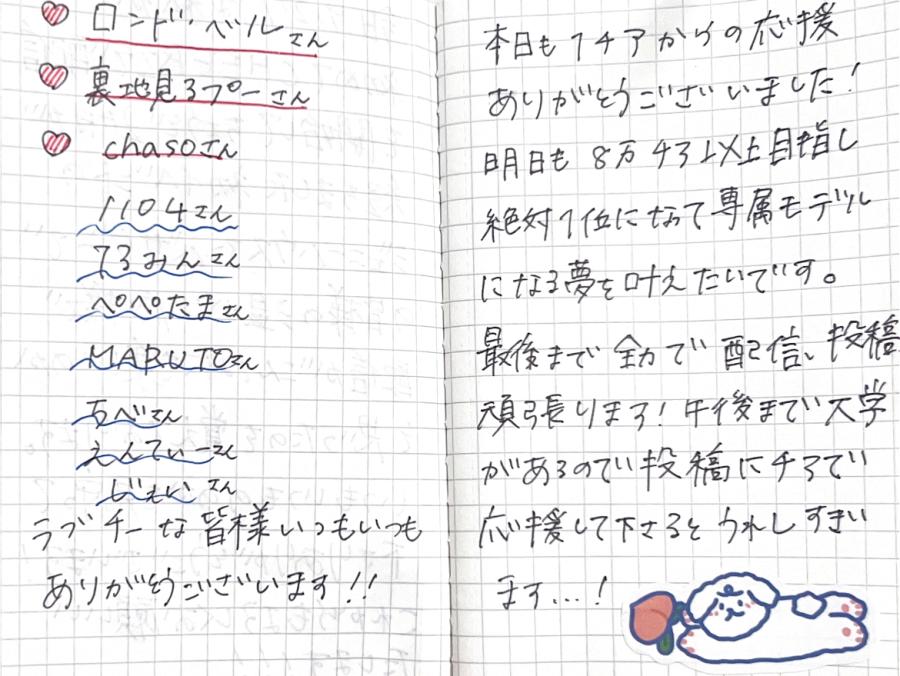 ロンドベルさん
裏地見るプーさん
chasoさん
1104さん
73みんさん
ぺぺたまさん
MARUTOさん
ちべさん
えんてぃーさん
じぇいさん
ラブチーな皆様いつもいつも
ありがとうございます!!
本日も1チアからの応援
ありがとうございました!
明日も8万チア以上目指し
絶対1位になって専属モデル
になる夢を叶えたいです。
最後まで全力で配信、投稿
頑張ります!午後まで大学
があるので投稿にチアで
応援して下さるとうれしすぎい
ます...!